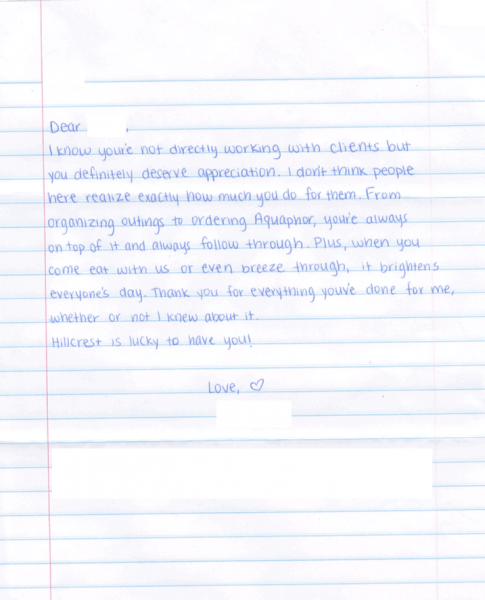 Dear ,
I know you're not directly working with clients but
you definitely deserve appreciation. I don't think people
here realize exactly how much you do for them. From
organizing outings to ordering Aquaphor, you're always
on top of it and always follow through. Plus, when you
come eat with us or even breeze through, it brightens
everyone's day. Thank you for everything you've done for me,
whether or not I knew about it.
Hillcrest is lucky to have you!
Love, ♡